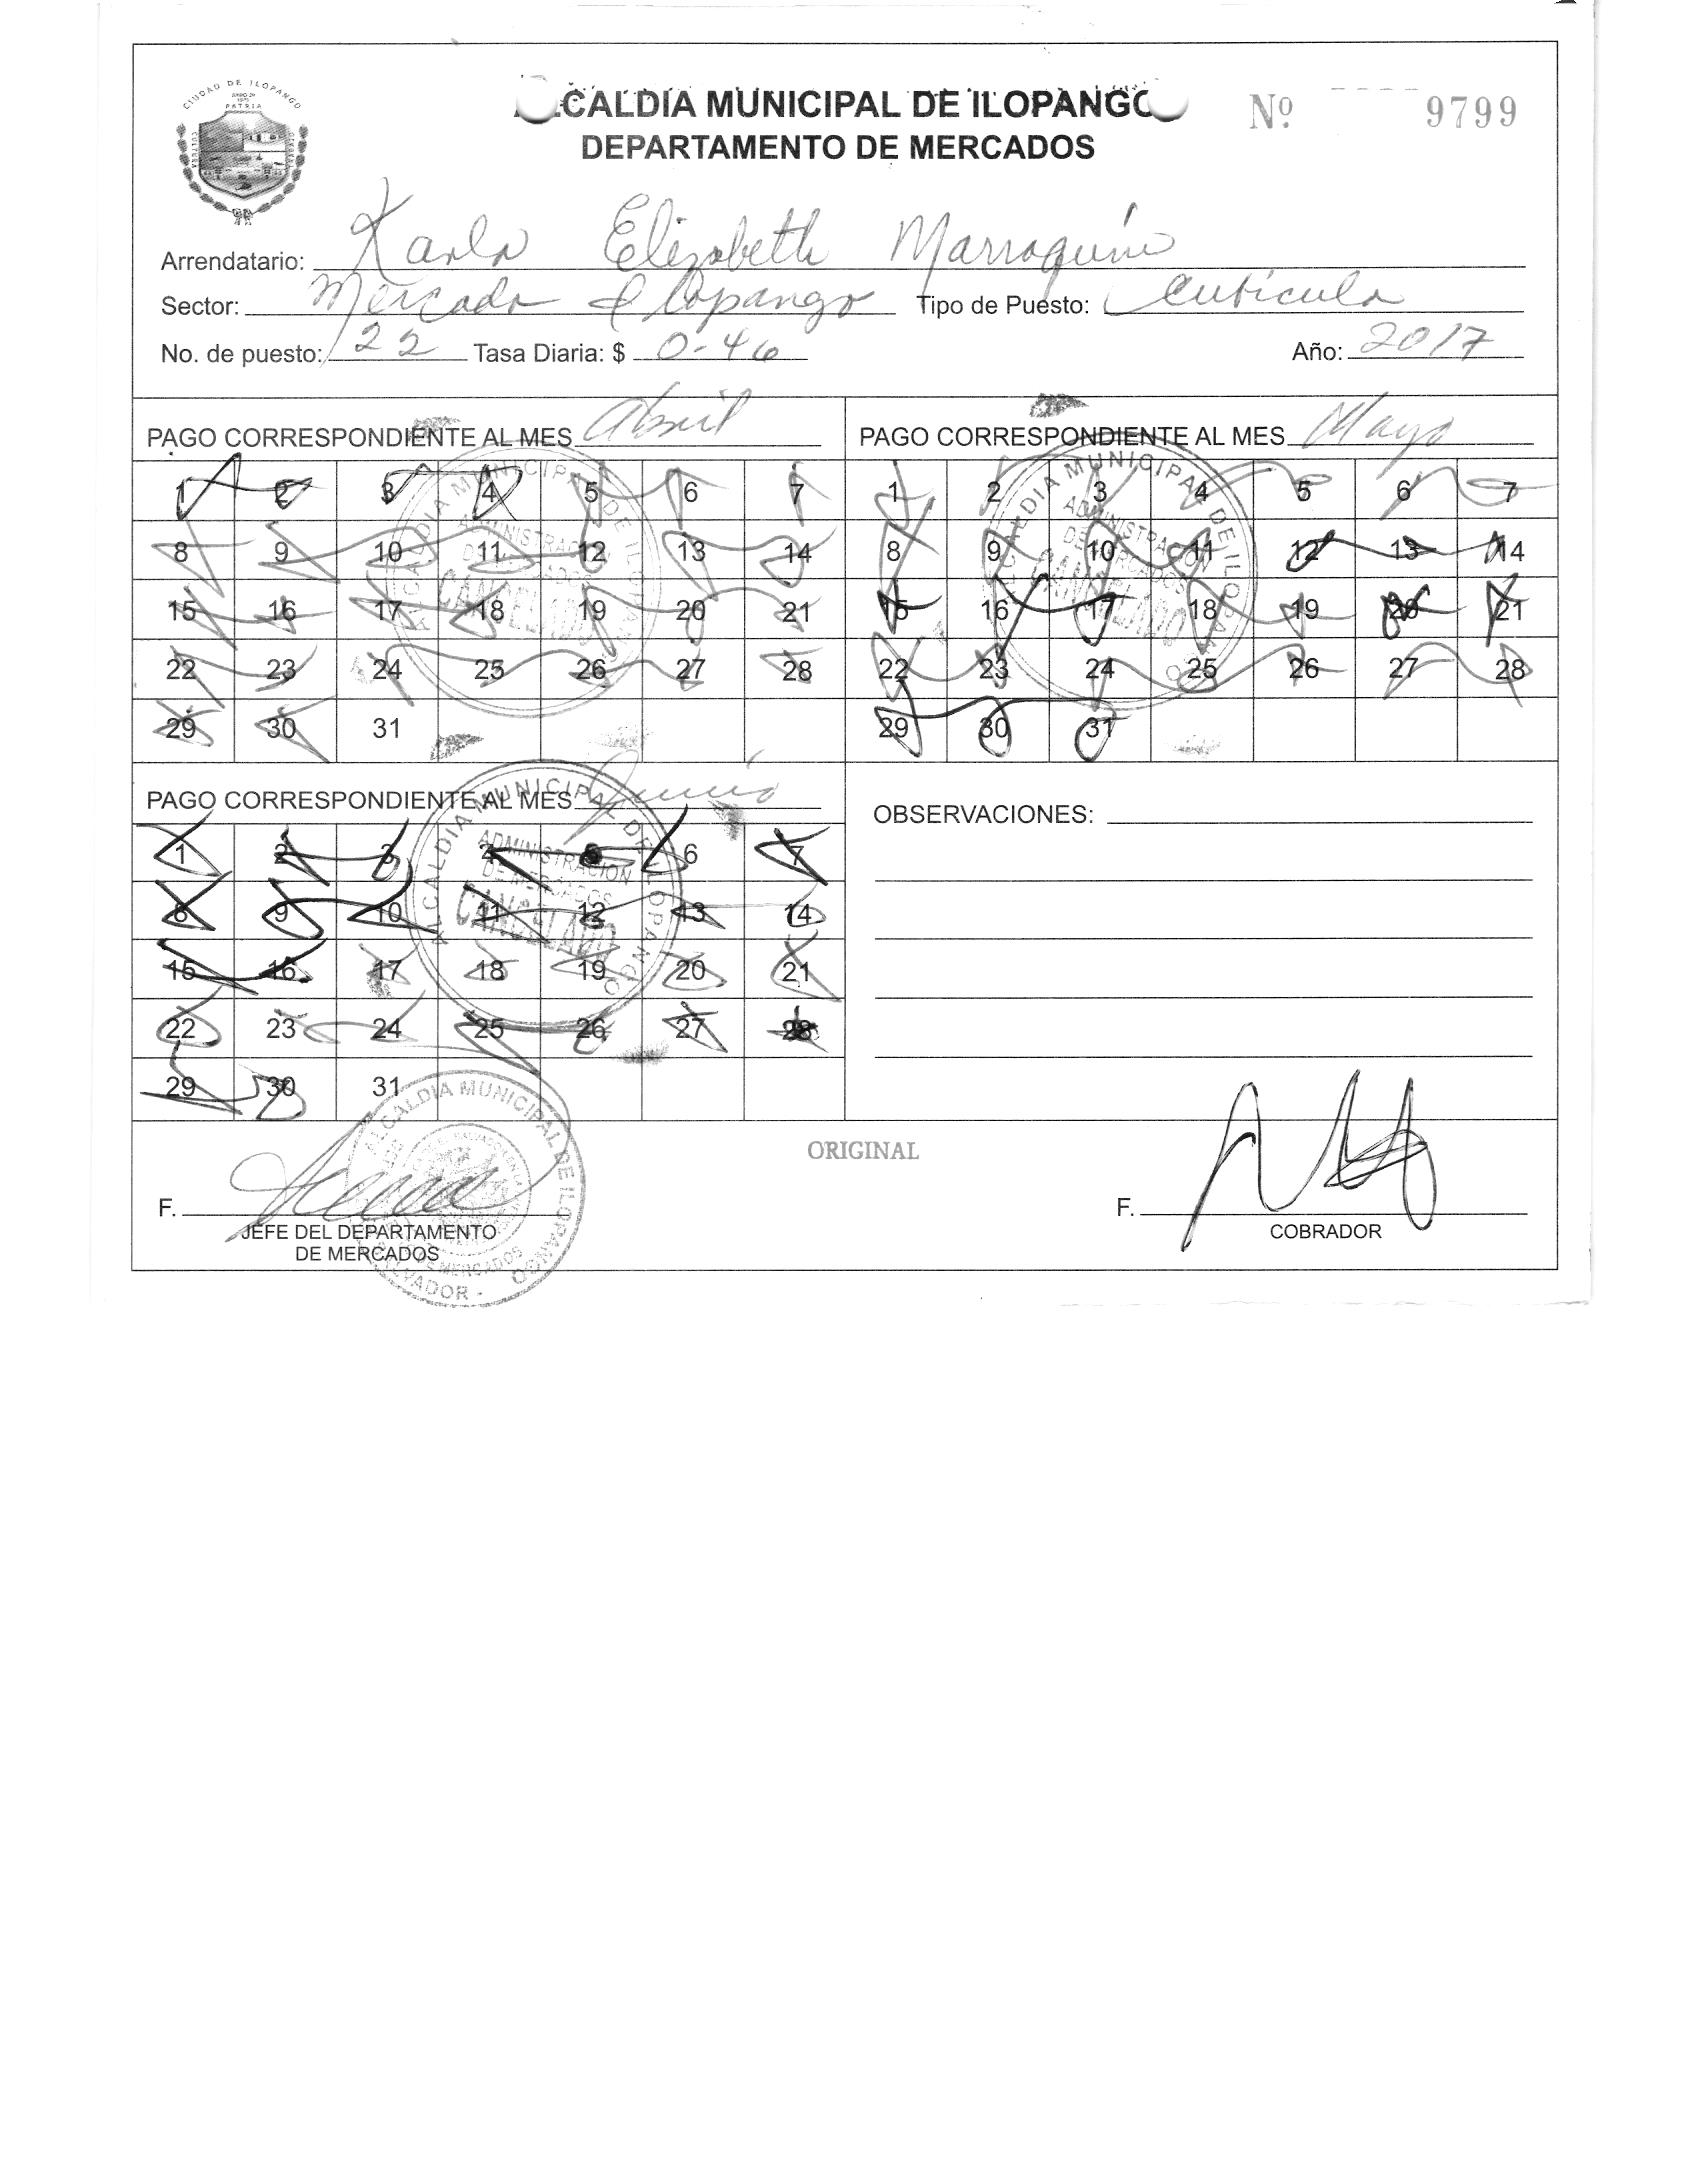 CIUDAD DE ILOPANGO
PATRIA
CALDIA MUNICIPAL DE ILOPANGO
Nº 9799
DEPARTAMENTO DE MERCADOS
Arrendatario: Karla Elizabeth Marroquin
Sector: Mercado Ilopango Tipo de Puesto: Cubicula
No. de puesto: 22 Tasa Diaria: $ 0-46 Año: 2017
PAGO CORRESPONDIENTE AL MES Abril
1 2 3 4 5 6 7
8 9 10 11 12 13 14
15 16 17 18 19 20 21
22 23 24 25 26 27 28
29 30 31
ALCALDIA MUNICIPAL DE ILOPANGO
ADMINISTRACION
DE MERCADOS
CANCELADO
PAGO CORRESPONDIENTE AL MES Mayo
1 2 3 4 5 6 7
8 9 10 11 12 13 14
15 16 17 18 19 20 21
22 23 24 25 26 27 28
29 30 31
ALCALDIA MUNICIPAL DE ILOPANGO
ADMINISTRACION
DE MERCADOS
CANCELADO
PAGO CORRESPONDIENTE AL MES Junio
1 2 3 4 5 6 7
8 9 10 11 12 13 14
15 16 17 18 19 20 21
22 23 24 25 26 27 28
29 30 31
ALCALDIA MUNICIPAL DE ILOPANGO
ADMINISTRACION
DE MERCADOS
CANCELADO
OBSERVACIONES:
ORIGINAL
F.
JEFE DEL DEPARTAMENTO
DE MERCADOS
ALCALDIA MUNICIPAL DE ILOPANGO
DE MERCADOS
SALVADOR -
F.
COBRADOR